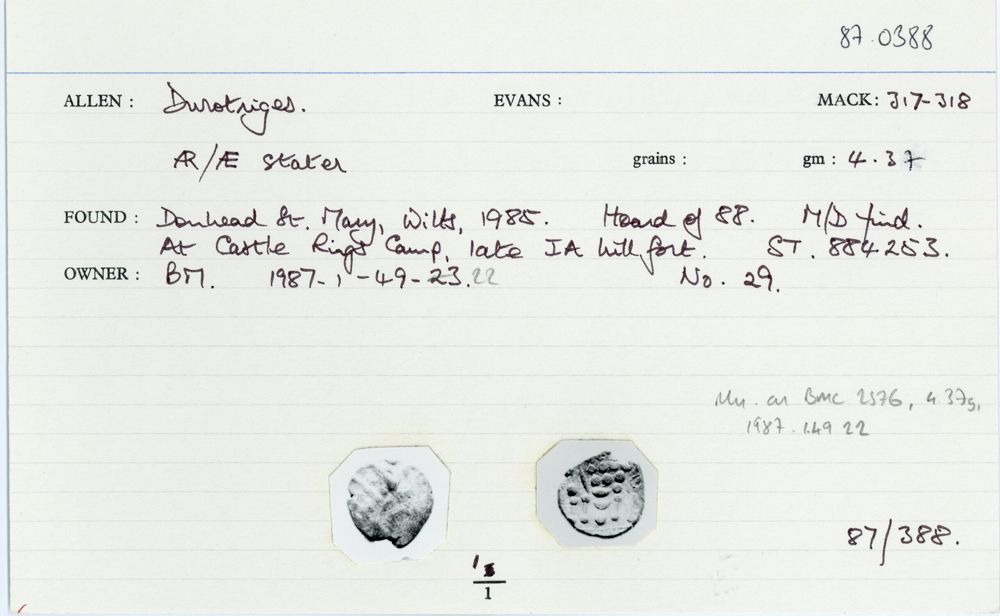 87.0388
ALLEN : Durotriges. EVANS : MACK : 317-318
AR/Æ Stater grains : gm : 4.37
FOUND : Donhead St. Mary, Wilts, 1985. Hoard of 88. M/D find.
At Castle Rings Camp, late IA hill fort. ST. 884253.
OWNER : BM. 1987-1-49-23.22 No. 29.
BMC 2576, 4.37g,
1987.1.49 22
87/388.
1
1